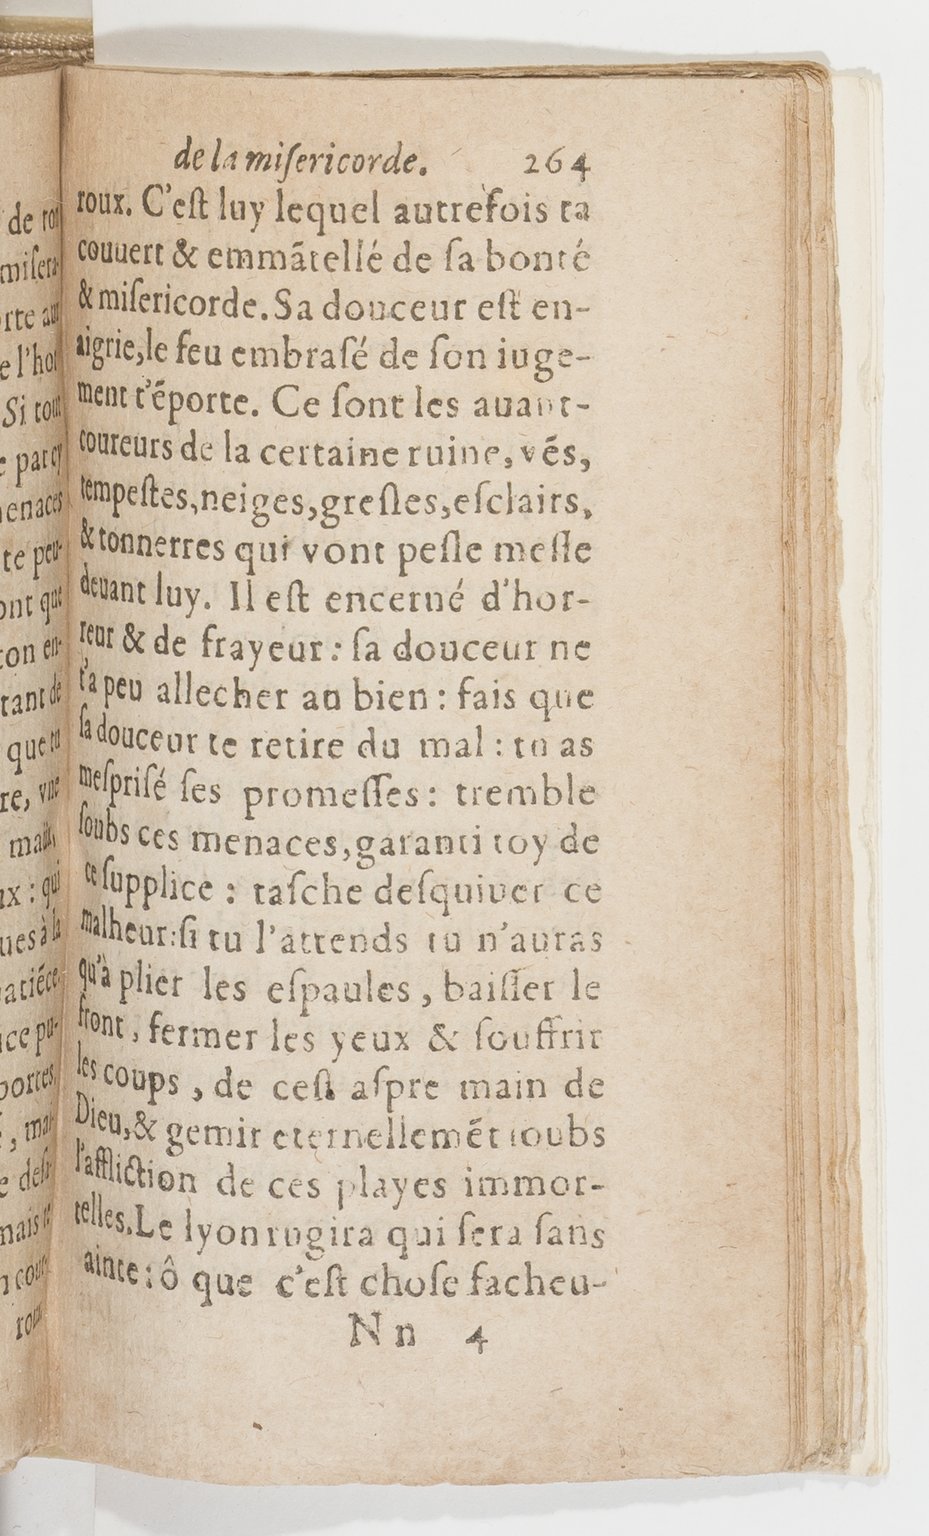 de la miſericorde. 264
roux. C'eſt luy lequel autrefois ta
couuert & emmãtellé de ſa bonté
& miſericorde. Sa douceur eſt en-
aigrie, le feu embraſé de ſon iuge-
ment t'éporte. Ce ſont les auant-
coureurs de la certaine ruine, vẽs,
tempeſtes, neiges, greſles, eſclairs,
& tonnerres qui vont peſle meſle
deuant luy. Il eſt encerné d'hor-
reur & de frayeur : ſa douceur ne
t'a peu allecher au bien : fais que
ſa douceur te retire du mal : tu as
meſpriſé ſes promeſſes : tremble
ſoubs ces menaces, garanti toy de
ce ſupplice : taſche deſquiuer ce
malheur : ſi tu l'attends tu n'auras
qu'à plier les eſpaules, baiſſer le
front, fermer les yeux & ſouffrir
les coups, de ceſt aſpre main de
Dieu, & gemir eternellemẽt ſoubs
l'affliction de ces playes immor-
telles. Le lyon rugira qui ſera ſans
ainte : ô que c'eſt choſe facheu-
Nn 4
de
miſera
rte
e l'ho
Si tout
parcy
menaces
te peu-
ont que
ton en-
tant de
que tu
re, vne
mais,
ux : qui
ues à la
patiẽce
ice pu-
portes
mai-